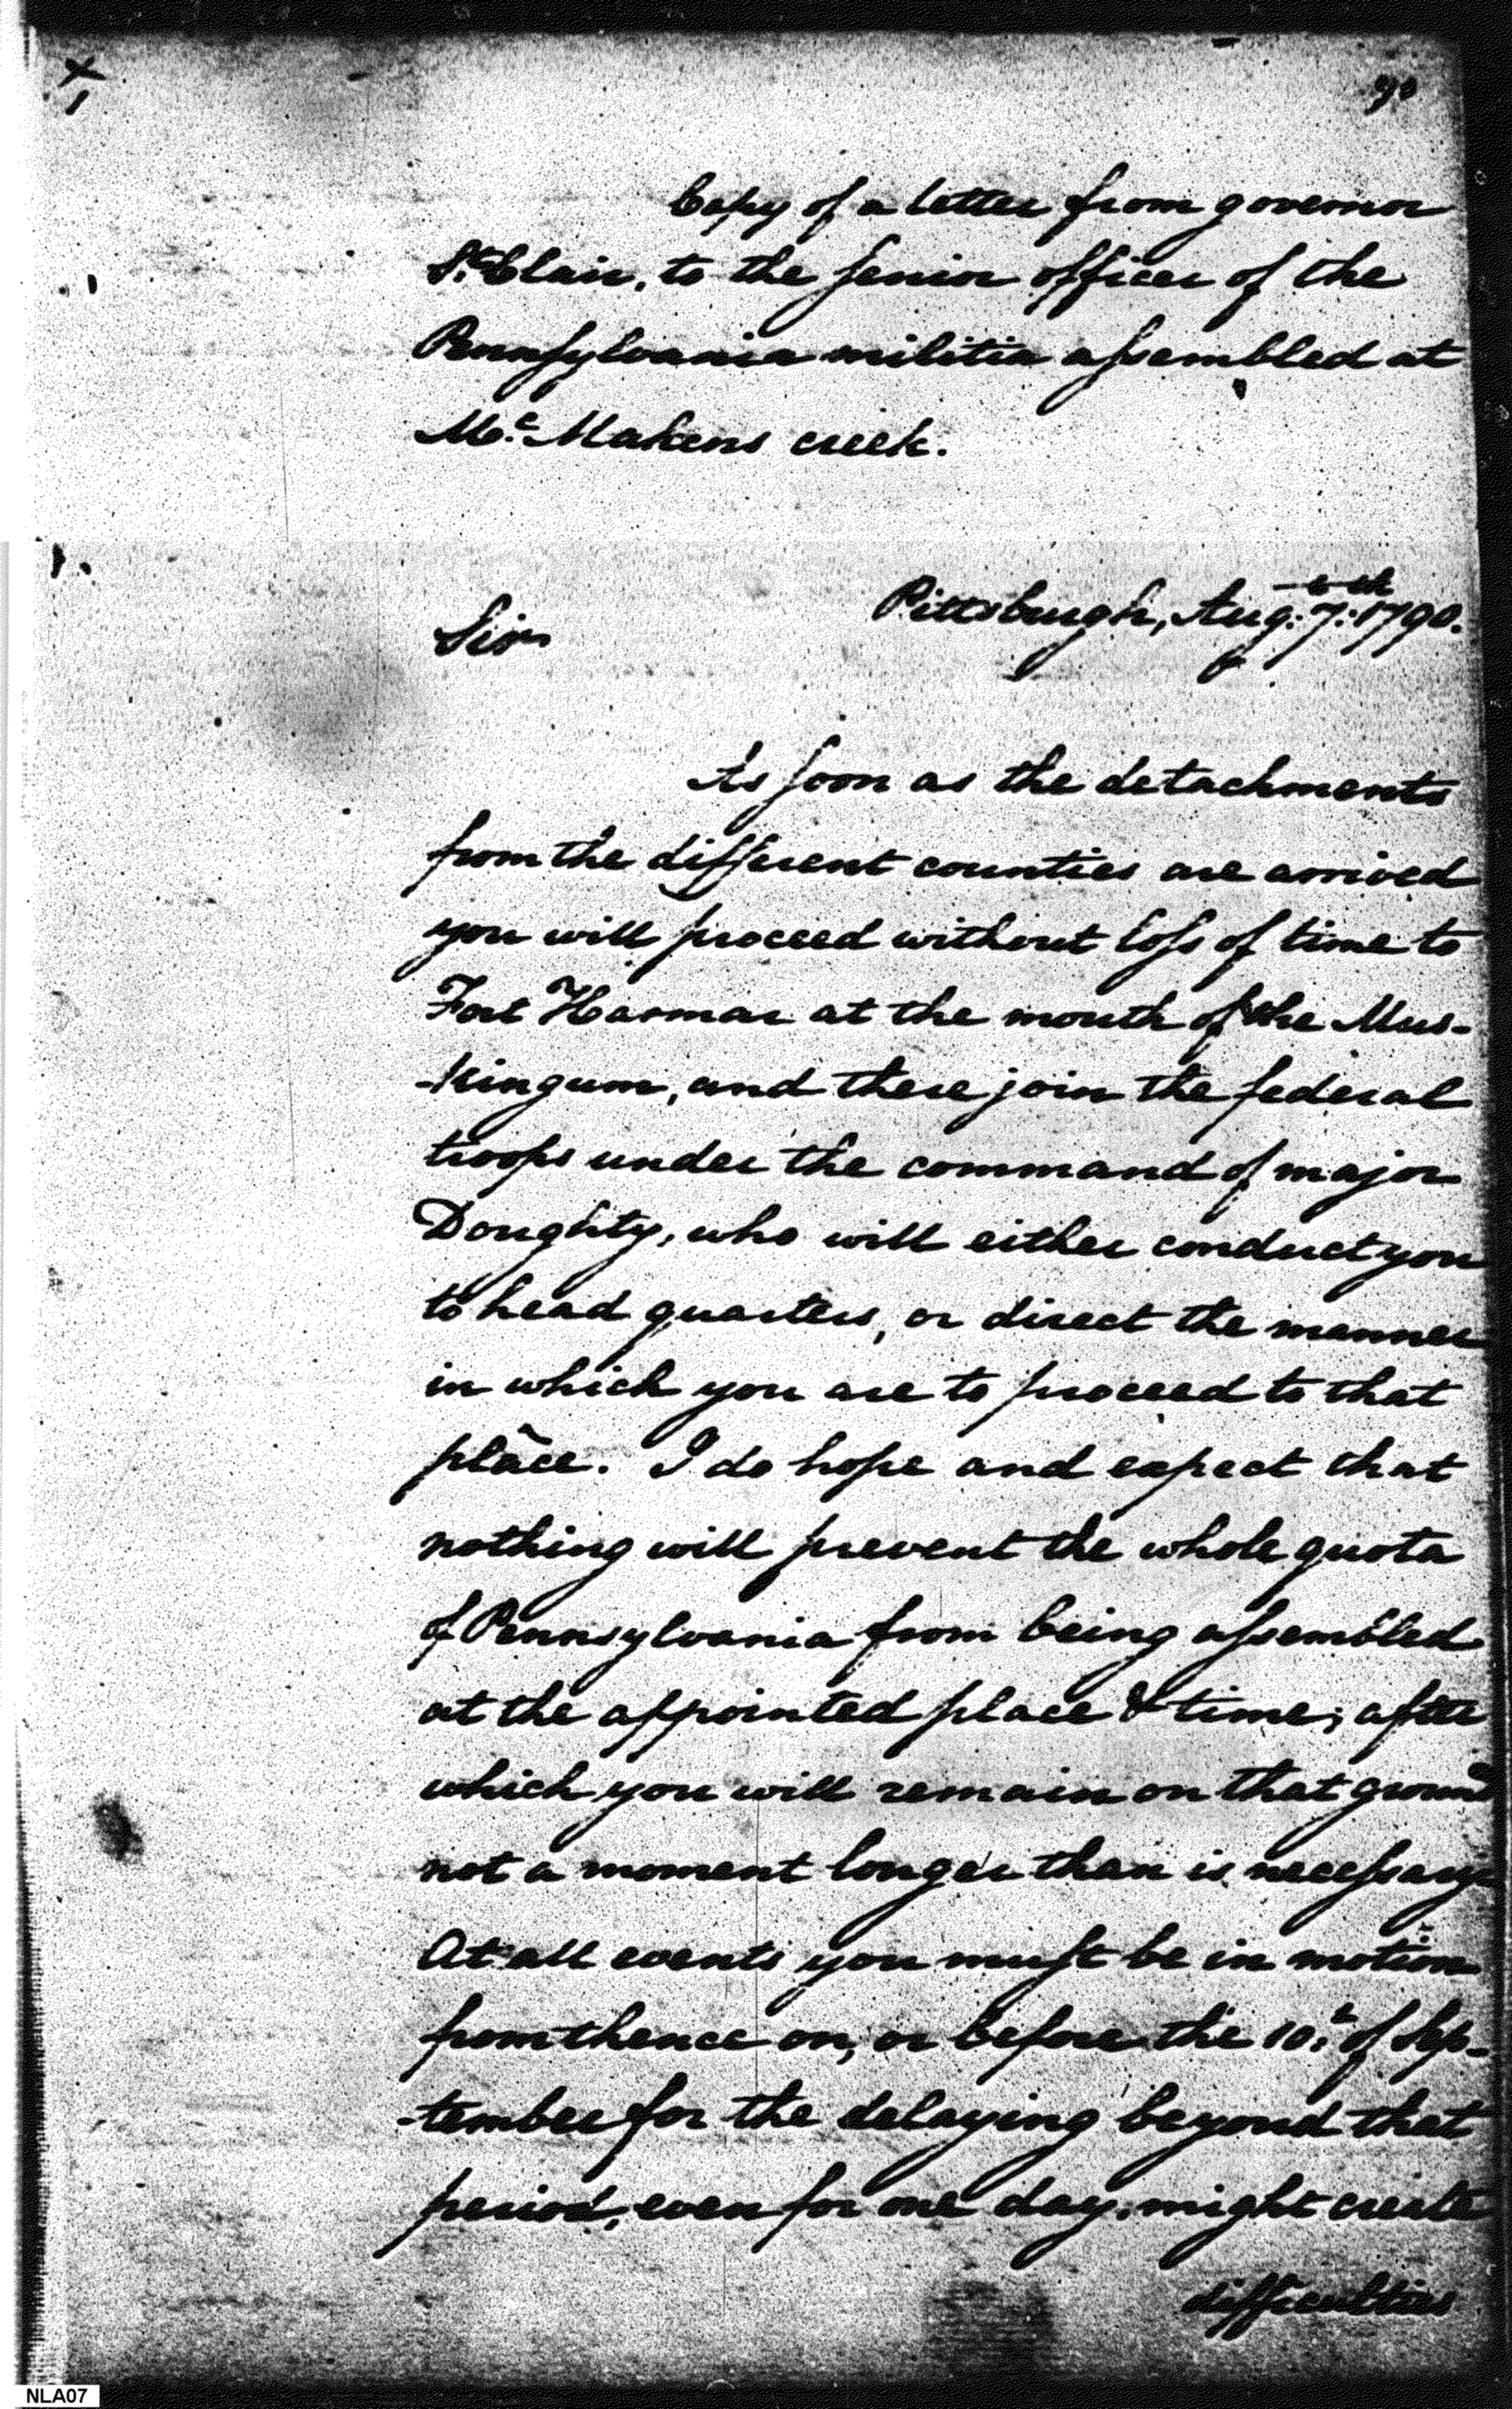 90
Copy of a letter from governor
St. Clair, to the senior officer of the
Pennsylvania militia assembled at
Mc. Makens creek.
Pittsburgh, Aug: 7th: 1790.
Sir
As soon as the detachments
from the different counties are arrived
you will proceed without loss of time to
Fort Harmar at the mouth of the Mus-
-kingum, and there join the federal
troops under the command of major
Doughty, who will either conduct you
to head quarters, or direct the manner
in which you are to proceed to that
place. I do hope and expect that
nothing will prevent the whole quota
of Pennsylvania from being assembled
at the appointed place & time; after
which you will remain on that ground
not a moment longer than is necessary
At all events you must be in motion
from thence on, or before the 10th of Sep-
-tember for the delaying beyond that
period, even for one day, might create
difficulties
NLA07